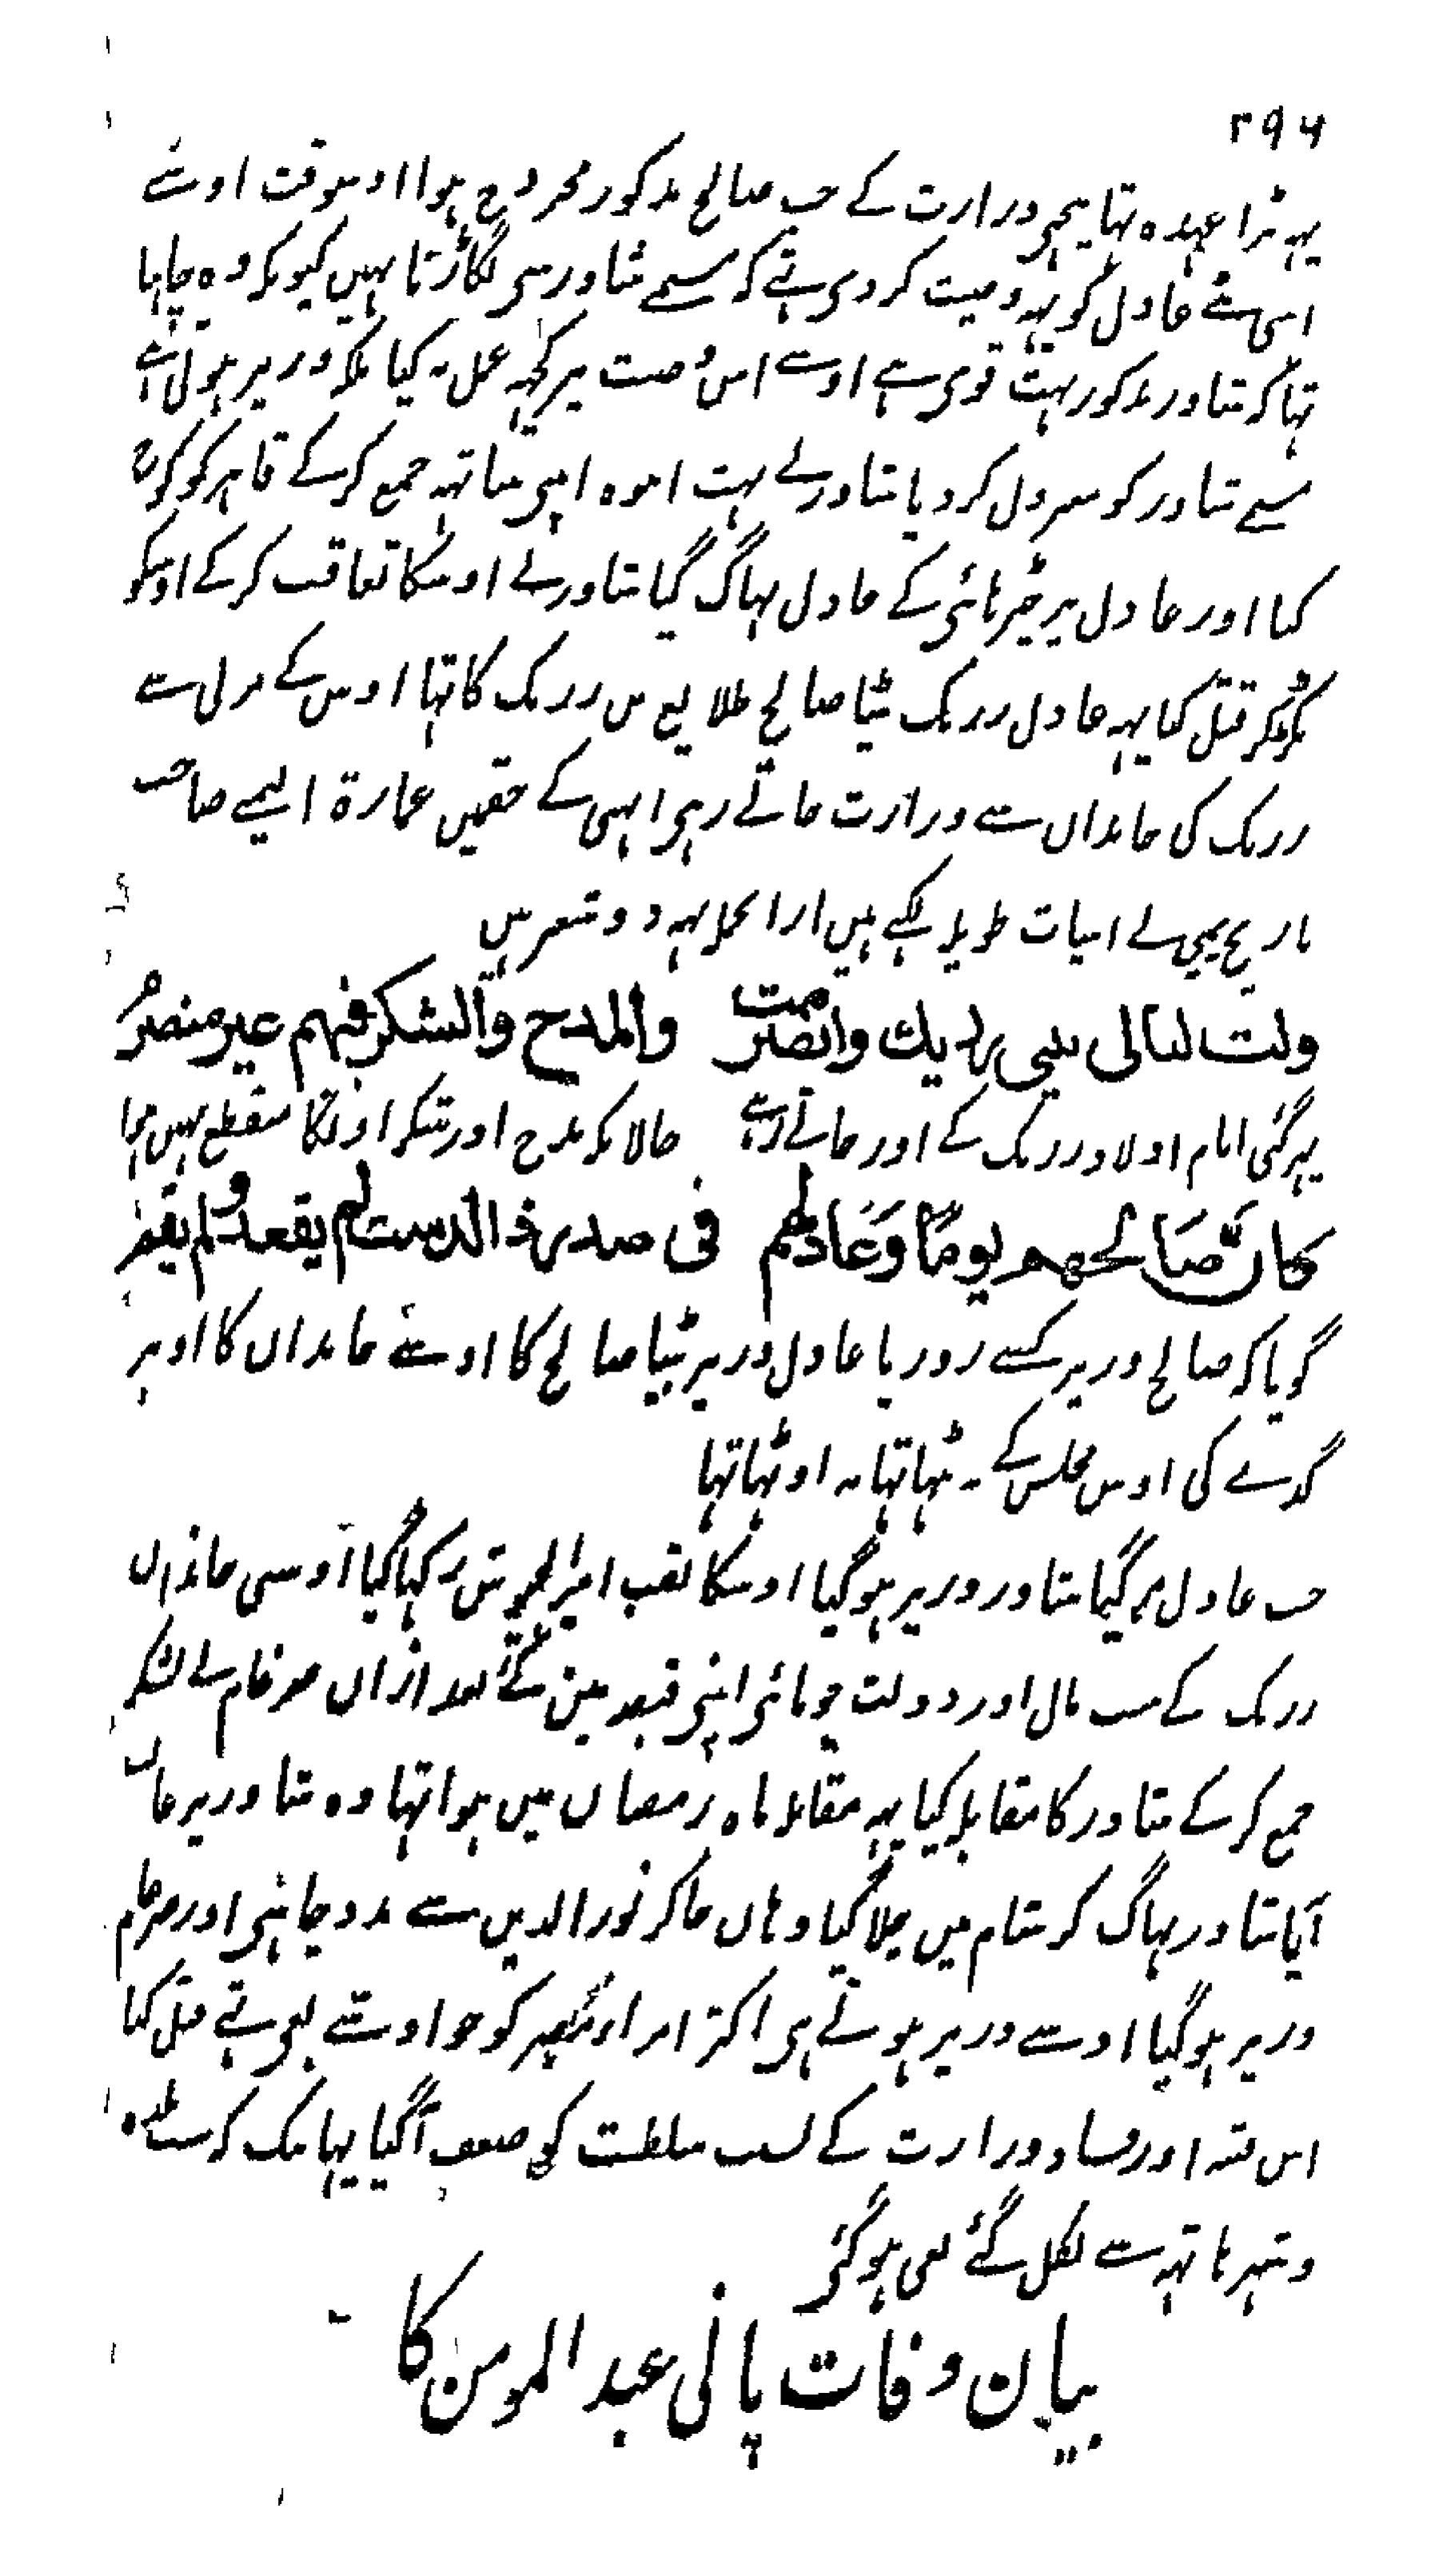 ۲۹۶
یہہ بڑا عہدہ تہا نیچی وزارت کے جب صالح مذکور مجروح ہوا اوسوقت اوسنے
اسی عادل کو یہہ وصیت کردی تہے کہ شاور سی بگاڑنا نہیں کیونکہ وہ جانتا
تہا کہ شاور مذکور بہت قوی ہے اوسنے اس وصیت پر کچہہ عمل نہ کیا بلکہ وزیر ہوتے
سے شاور کو معزول کردیا شاور نے بہت انبوہ اپنی ساتہہ جمع کرکے قاہرہ کو کوچ
کیا اور عادل پر چڑہائی کے عادل بہاگ گیا شاور نے اوسکا تعاقب کرکے اوسکو
پکڑکر قتل کیا یہہ عادل رزیک بیٹا صالح طلایع بن رزیک کا تہا اوس کے مرنی سے
رزیک کی خاندان سے وزارت جاتے رہی اسی کے حقمیں عمارۃ الیمنے صاحب
تاریخ یمن نے ابیات طویلہ لکہے ہیں ازانجملہ یہہ دو شعر ہیں
ولت لیالی بنی رزیك وانصرمت والمدح والشكر فیهم غیر منصرم
پہر گئی ایام اولاد رزیک کے اور جاتے رہے حالانکہ مدح اور شکر اونکا منقطع نہیں ہوا
كانّ صالحهم یوماً وعادلهم فی صدر ذا الدست لم یقعد ولم یقم
گویا کہ صالح وزیر کسے روز یا عادل وزیر بیٹا صالح کا اوسنے خاندان کا اوپر
گدے کی اوس مجلس کے نہ بیٹہا تہا نہ اوٹہا تہا
جب عادل مرگیا شاور وزیر ہوگیا اوسکا لقب امیر الجیوش رکہا گیا اوسی خاندان
رزیک کے سب مال اور دولت چہائی اپنی قبضہ مین کئے بعد ازاں ضرغام نے لشکر
جمع کرکے شاور کا مقابلہ کیا یہہ مقابلہ ماہ رمضان میں ہوا تہا وہ شاور پر غالب
آیا شاور بہاگ کر شام میں چلا گیا وہاں جاکر نورالدین سے مدد چاہی اور ضرغام
وزیر ہوگیا اوسے وزیر ہوتے ہی اکثر امراء مصر کو جو اوسے باغی تہے قتل کیا
اس فتنہ اور فساد وزارت کے سبب سلطنت کو ضعف آگیا یہانتک کہ سلطنت
و شہر ہاتہہ سے نکل گئے ہوگئی
بیان وفات پانی عبد المومن کا